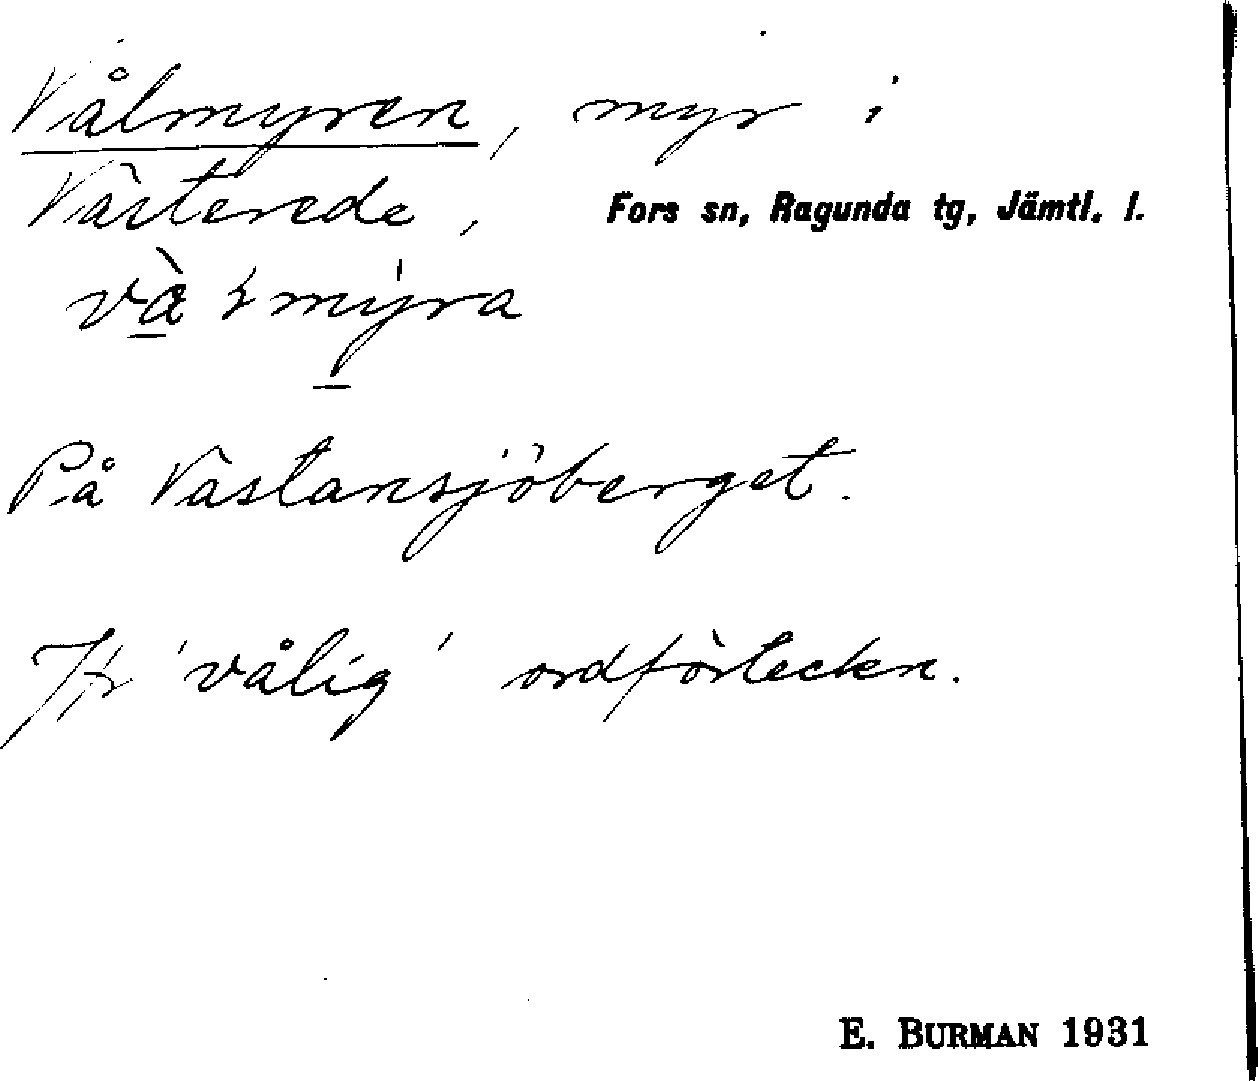 Vålmyren, myr i
Västerede, Fors sn, Ragunda tg, Jämtl. l.
På Västansjöberget.
Jfr 'vålig' ordförteckn.
E. BURMAN 1931